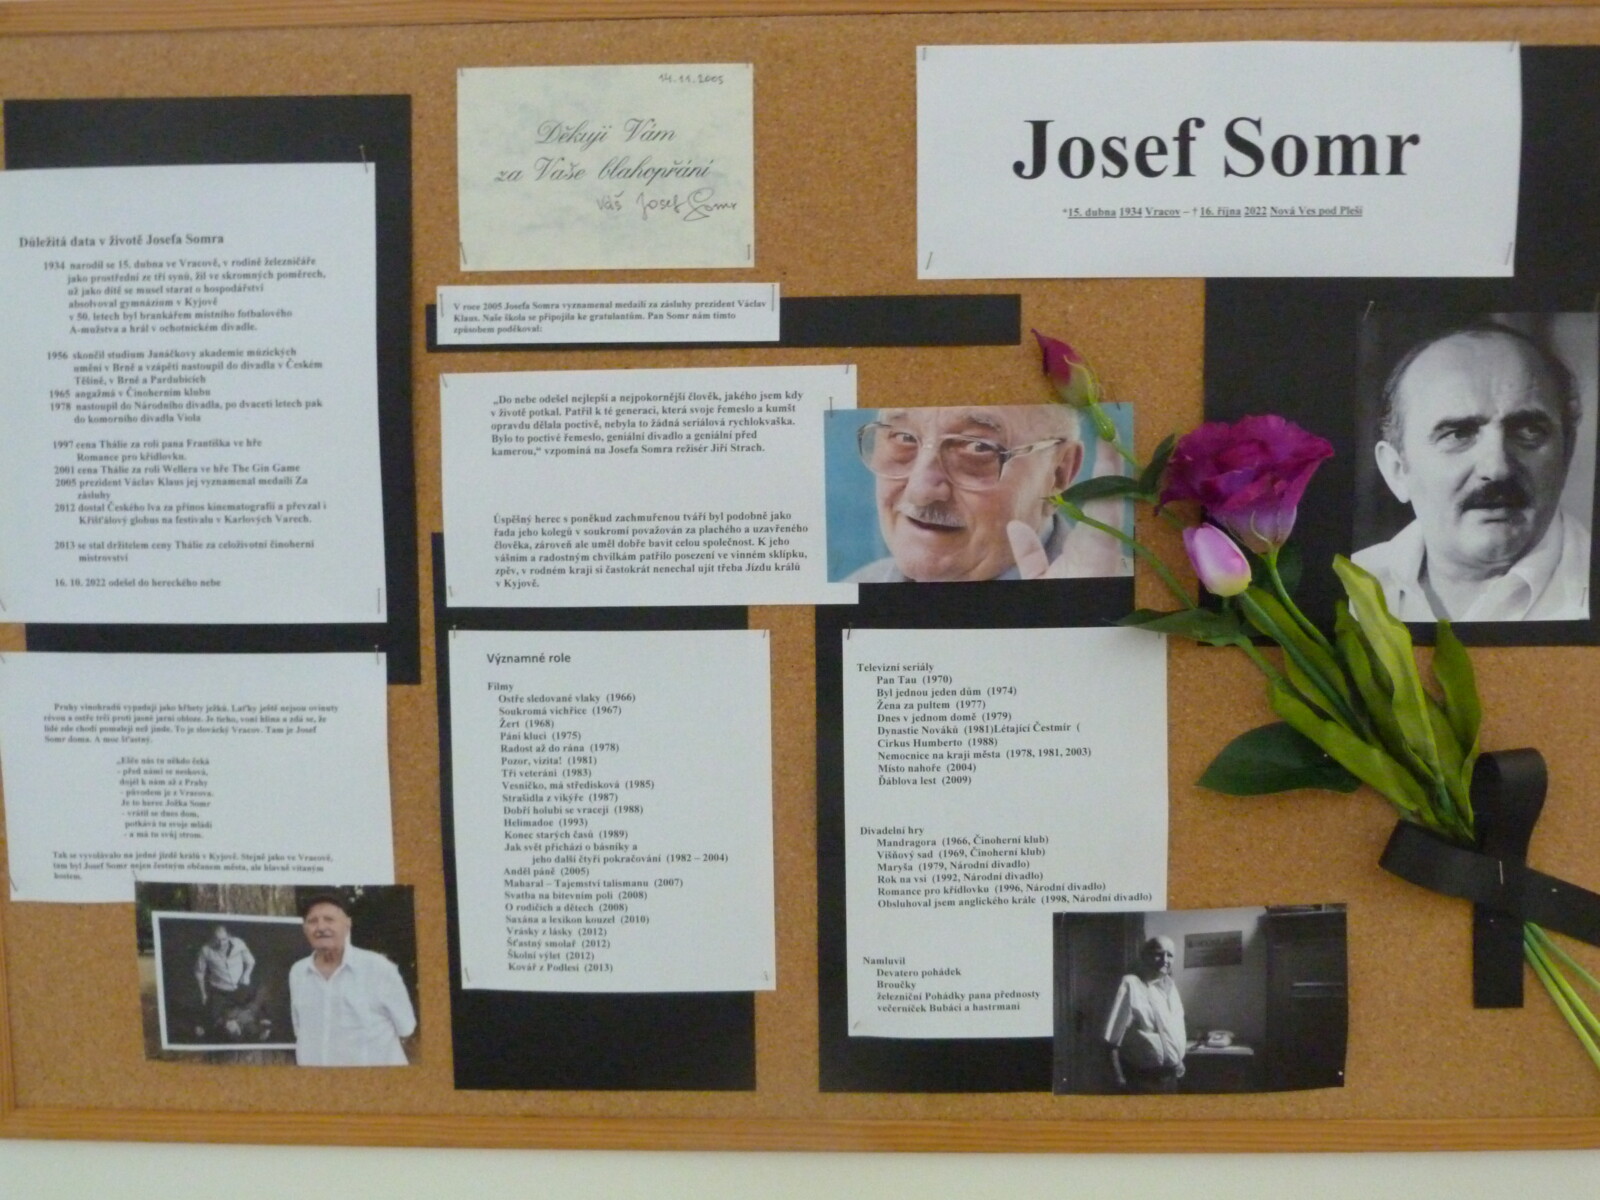 Josef Somr
*15. dubna 1934 Vracov – † 16. října 2022 Nová Ves pod Pleší
14.11.2005
Děkuji Vám
za Vaše blahopřání
Váš Josef Somr
V roce 2005 Josefa Somra vyznamenal medailí za zásluhy prezident Václav
Klaus. Naše škola se připojila ke gratulantům. Pan Somr nám tímto
způsobem poděkoval:
Důležitá data v životě Josefa Somra
1934 narodil se 15. dubna ve Vracově, v rodině železničáře
jako prostřední ze tří synů, žil ve skromných poměrech,
už jako dítě se musel starat o hospodářství
absolvoval gymnázium v Kyjově
v 50. letech byl brankářem místního fotbalového
A-mužstva a hrál v ochotnickém divadle.
1956 skončil studium Janáčkovy akademie múzických
umění v Brně a vzápětí nastoupil do divadla v Českém
Těšíně, v Brně a Pardubicích
1965 angažmá v Činoherním klubu
1978 nastoupil do Národního divadla, po dvaceti letech pak
do komorního divadla Viola
1997 cena Thálie za roli pana Františka ve hře
Romance pro křídlovku.
2001 cena Thálie za roli Wellera ve hře The Gin Game
2005 prezident Václav Klaus jej vyznamenal medailí Za
zásluhy
2012 dostal Českého lva za přínos kinematografii a převzal i
Křišťálový globus na festivalu v Karlových Varech.
2013 se stal držitelem ceny Thálie za celoživotní činoherní
mistrovství
16. 10. 2022 odešel do hereckého nebe
„Do nebe odešel nejlepší a nejpokornější člověk, jakého jsem kdy
v životě potkal. Patřil k té generaci, která svoje řemeslo a kumšt
opravdu dělala poctivě, nebyla to žádná seriálová rychlokvaška.
Bylo to poctivé řemeslo, geniální divadlo a geniální před
kamerou,“ vzpomíná na Josefa Somra režisér Jiří Strach.
Úspěšný herec s poněkud zachmuřenou tváří byl podobně jako
řada jeho kolegů v soukromí považován za plachého a uzavřeného
člověka, zároveň ale uměl dobře bavit celou společnost. K jeho
vášním a radostným chvilkám patřilo posezení ve vinném sklípku,
zpěv, v rodném kraji si častokrát nenechal ujít třeba Jízdu králů
v Kyjově.
Pruhy vinohradů vypadají jako hřbety ježků. Laťky ještě nejsou ovinuty
révou a ostře trčí proti jasné jarní obloze. Je ticho, voní hlína a zdá se, že
lidé zde chodí pomaleji než jinde. To je slovácký Vracov. Tam je Josef
Somr doma. A moc šťastný.
„Ešče nás tu někdo čeká
- před námi se nesková,
dojel k nám až z Prahy
- původem je z Vracova.
Je to herec Jožka Somr
- vrátil se dnes dom,
potkává tu svoje mládí
- a má tu svůj strom.
Tak se vyvolávalo na jedné jízdě králů v Kyjově. Stejně jako ve Vracově,
tam byl Josef Somr nejen čestným občanem města, ale hlavně vítaným
hostem.
Významné role
Filmy
Ostře sledované vlaky (1966)
Soukromá vichřice (1967)
Žert (1968)
Páni kluci (1975)
Radost až do rána (1978)
Pozor, vizita! (1981)
Tři veteráni (1983)
Vesničko, má středisková (1985)
Strašidla z vikýře (1987)
Dobří holubi se vracejí (1988)
Helimadoe (1993)
Konec starých časů (1989)
Jak svět přichází o básníky a
jeho další čtyři pokračování (1982 – 2004)
Anděl páně (2005)
Maharal – Tajemství talismanu (2007)
Svatba na bitevním poli (2008)
O rodičích a dětech (2008)
Saxána a lexikon kouzel (2010)
Vrásky z lásky (2012)
Šťastný smolař (2012)
Školní výlet (2012)
Kovář z Podlesí (2013)
Televizní seriály
Pan Tau (1970)
Byl jednou jeden dům (1974)
Žena za pultem (1977)
Dnes v jednom domě (1979)
Dynastie Nováků (1981)Létající Čestmír (
Cirkus Humberto (1988)
Nemocnice na kraji města (1978, 1981, 2003)
Místo nahoře (2004)
Ďáblova lest (2009)
Divadelní hry
Mandragora (1966, Činoherní klub)
Višňový sad (1969, Činoherní klub)
Maryša (1979, Národní divadlo)
Rok na vsi (1992, Národní divadlo)
Romance pro křídlovku (1996, Národní divadlo)
Obsluhoval jsem anglického krále (1998, Národní divadlo)
Namluvil
Devatero pohádek
Broučky
železniční Pohádky pana přednosty
večerníček Bubáci a hastrmani